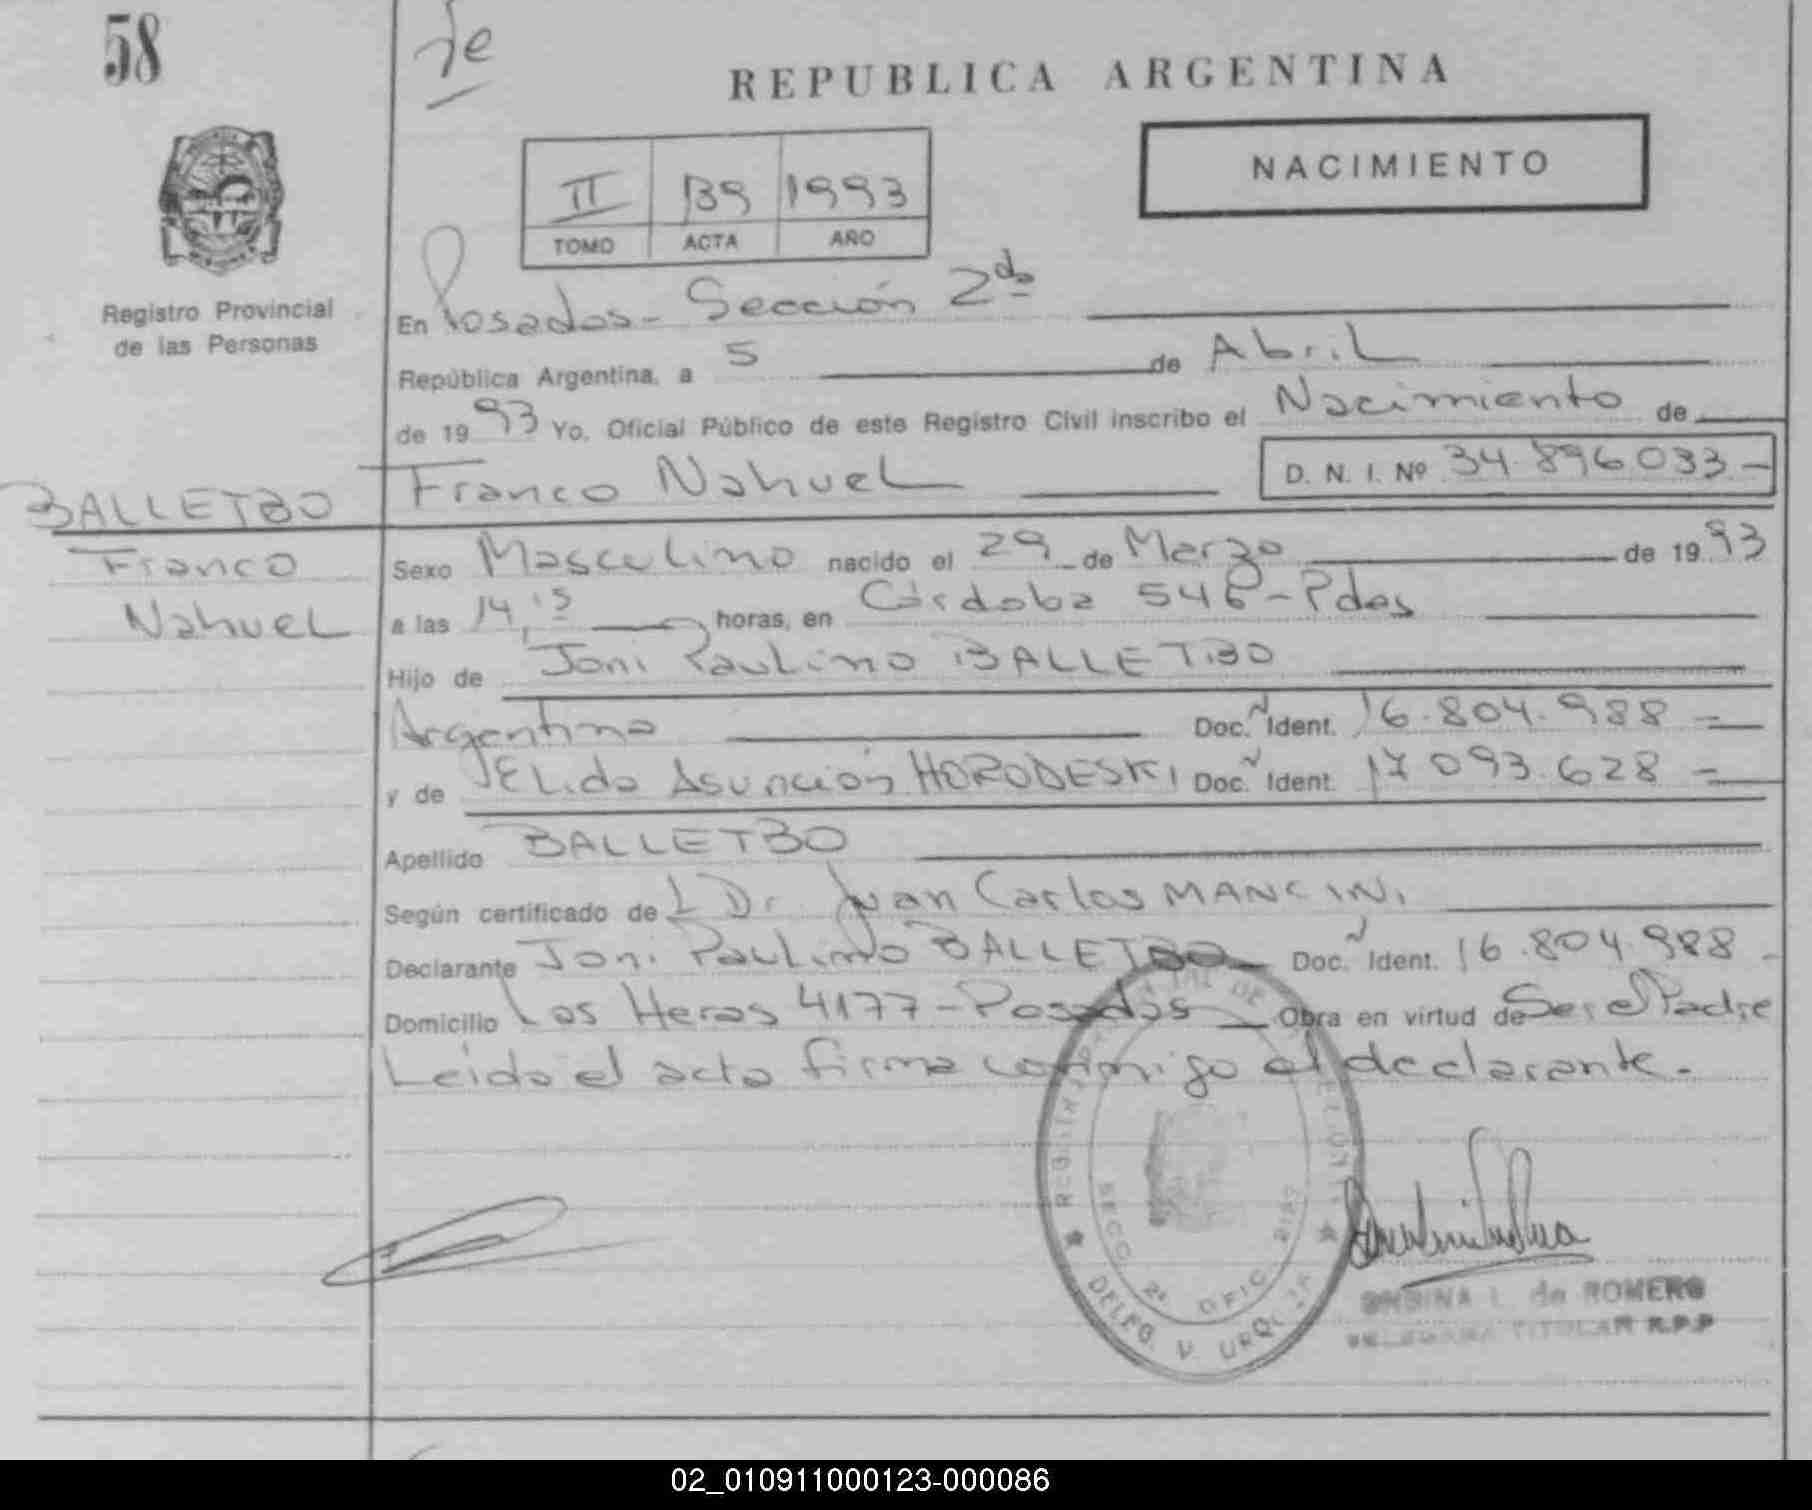 58
Je
REPUBLICA ARGENTINA
NACIMIENTO
II 139 1993
TOMO ACTA AÑO
Registro Provincial
de las Personas
En Posadas - Sección 2da
República Argentina, a 5 de Abril
de 1993 Yo, Oficial Público de este Registro Civil inscribo el Nacimiento de
Franco Nahuel D. N. I. Nº 34.896.033 -
BALLETBO
Franco
Nahuel
Sexo Masculino nacido el 29 de Marzo de 1993
a las 14,15 horas, en Córdoba 546 - Pdas
Hijo de Joni Paulino BALLETBO
Argentino Doc. Ident. 16.804.988 =
y de Elida Asunción HORODESKI Doc. Ident. 17.093.628 =
Apellido BALLETBO
Según certificado de L Dr. Juan Carlos MANCINI
Declarante Joni Paulino BALLETBO Doc. Ident. 16.804.988 -
Domicilio Las Heras 4177 - Posadas Obra en virtud de Ser el Padre
Leída el acta firma conmigo el declarante.
SECC. 2ª OFIC.
DELEG. V. URQUIZA
L. de ROMERO
TITULAR R.P.P
02_010911000123-000086